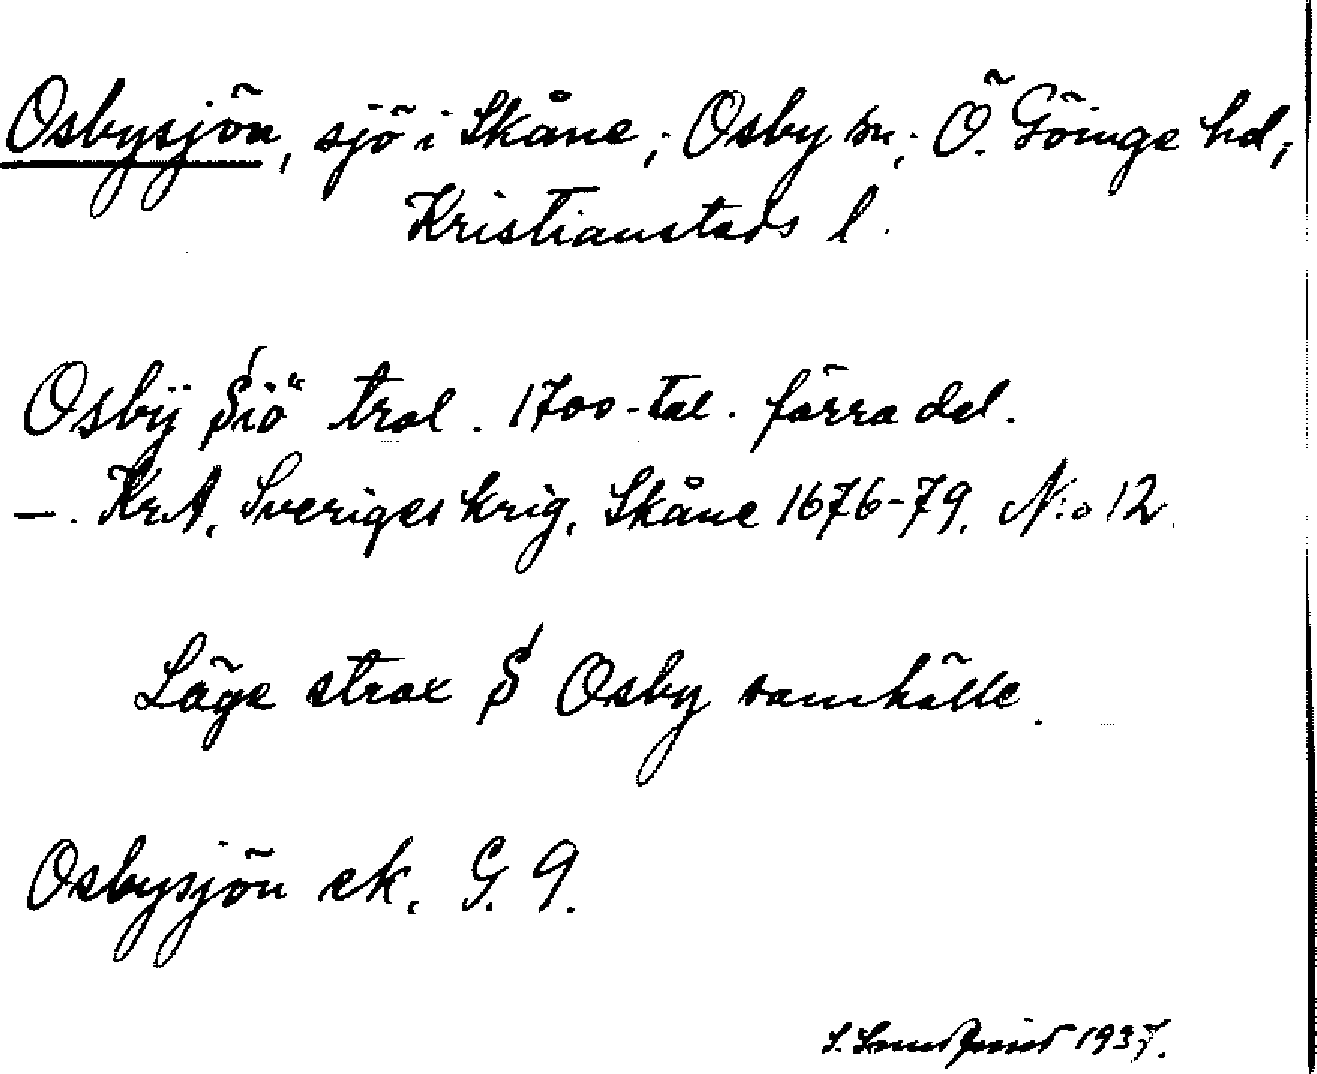 Osbysjön, sjö i Skåne; Osby sn; Ö. Göinge hd,
Kristianstads l.
Osbÿ Siö trol. 1700-tal. förra del.
—. KrA, Sveriges krig, Skåne 1676-79. N:o 12.
Läge strax S Osby samhälle.
Osbysjön ek. G. 9.
1937.